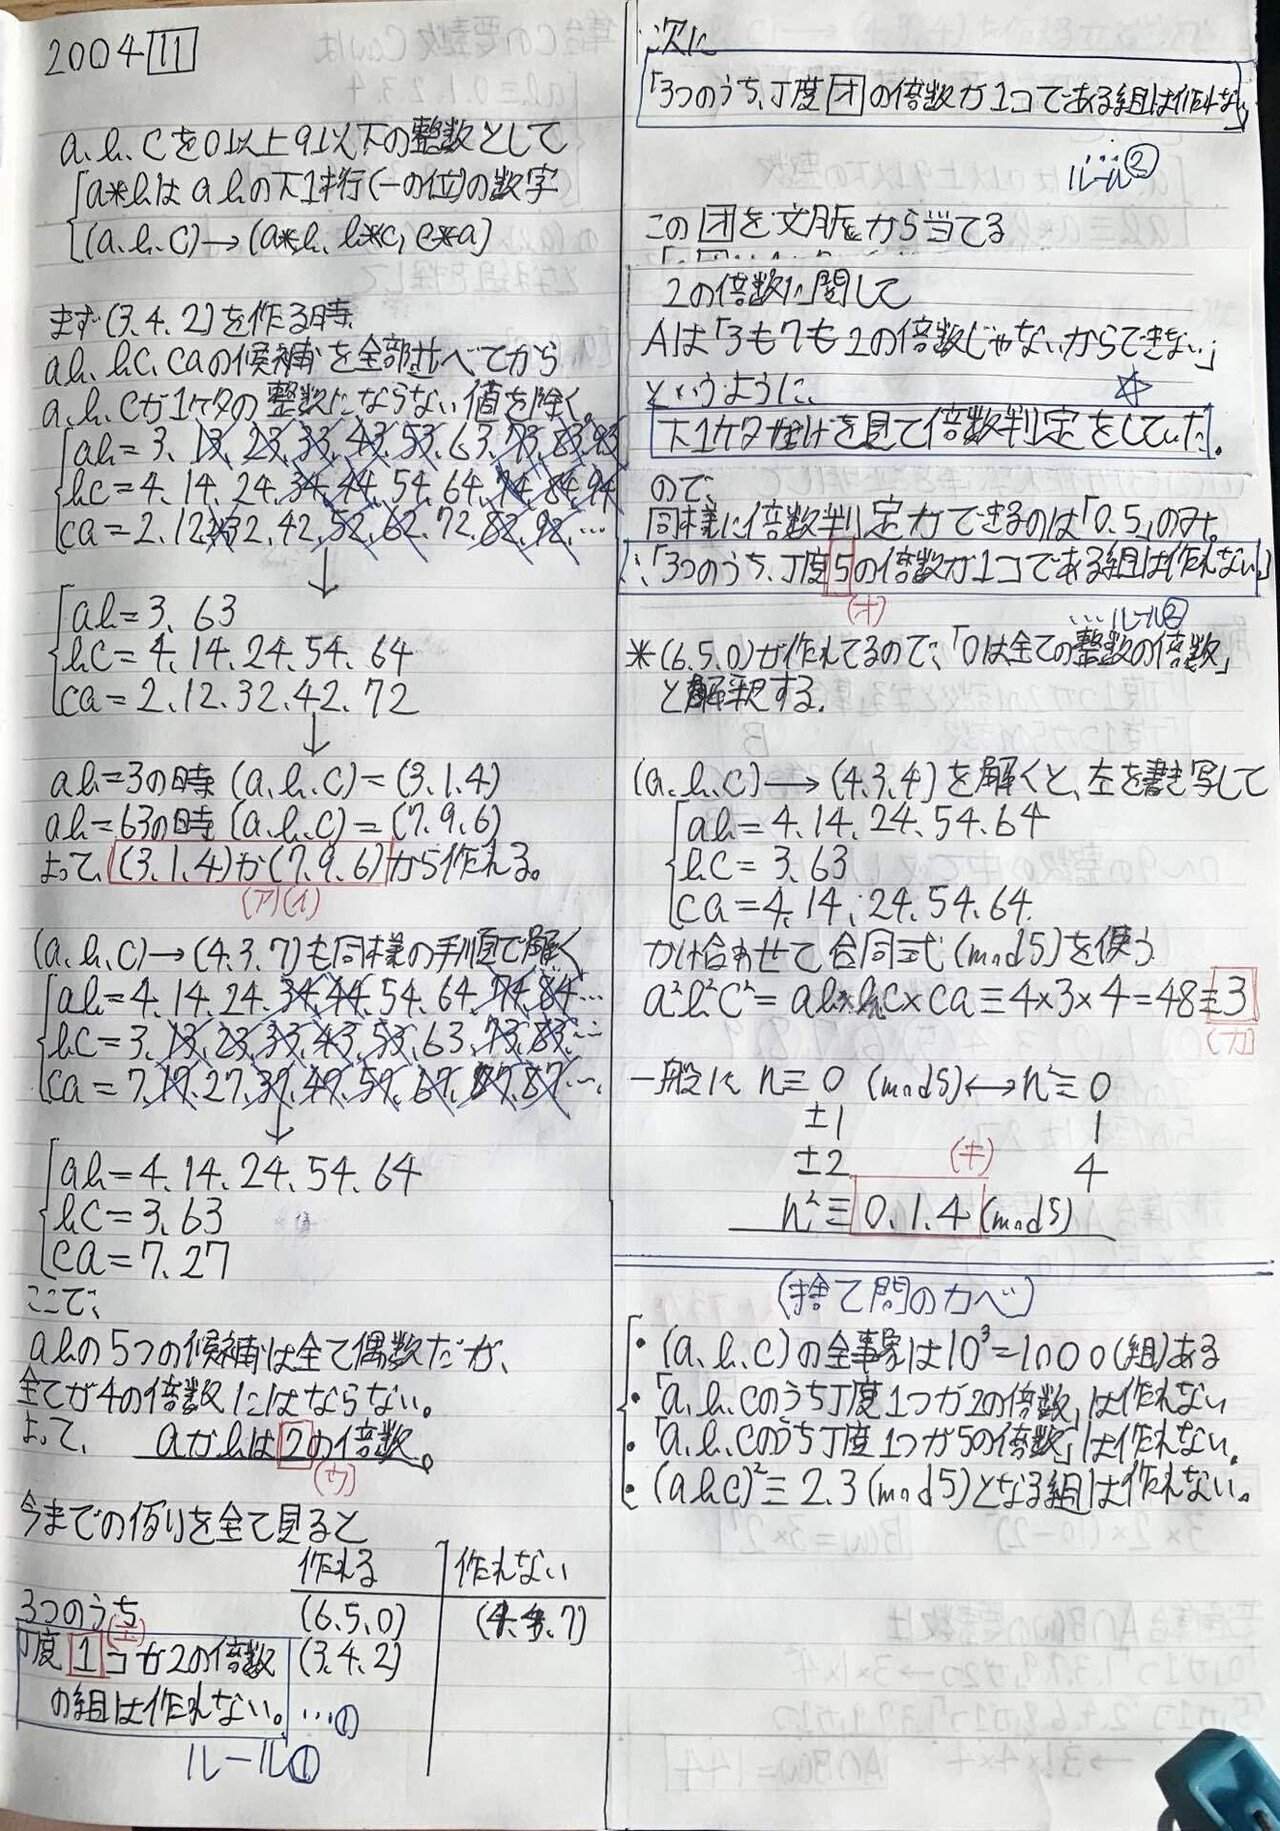 2004 11
a、b、cを0以上9以下の整数として
a*bはabの下1桁(一の位)の数字
(a、b、c)→(a*b、b*c、c*a)
まず(3、4、2)を作る時、
ab、bc、caの候補を全部並べてから
a、b、cが1ケタの整数にならない値を除く。
ab=3、13、23、33、43、53、63、73、83、93
bc=4、14、24、34、44、54、64、74、84、94
ca=2、12、22、32、42、52、62、72、82、92、…
↓
ab=3、63
bc=4、14、24、54、64
ca=2、12、32、42、72
↓
ab=3の時(a、b、c)=(3、1、4)
ab=63の時(a、b、c)=(7、9、6)
よって、(3、1、4)か(7、9、6)から作れる。
(ア)(イ)
(a、b、c)→(4、3、7)も同様の手順で解く
ab=4、14、24、34、44、54、64、74、84…
bc=3、13、23、33、43、53、63、73、83、…
ca=7、17、27、37、47、57、67、77、87…
↓
ab=4、14、24、54、64
bc=3、63
ca=7、27
ここで、
abの5つの候補は全て偶数だが、
全てが4の倍数にはならない。
よって、aかbは2の倍数。
(ウ)
今までの例を全て見ると
作れる 作れない
(6、5、0) (4、3、7)
(3、4、2)
3つのうち
(エ)
丁度1コが2の倍数
の組は作れない。…①
ルール①
次に
「3つのうち、丁度オの倍数が1コである組は作れない」
…ルール②
このオを文脈から当てる
2の倍数に関して
Aは「3も7も2の倍数じゃないからできない」
というように、☆
下1ケタだけを見て倍数判定をしていた。
ので、
同様に倍数判定ができるのは「0、5」のみ。
∴「3つのうち、丁度5の倍数が1コである組は作れない。」
(オ)
…ルール②
*(6、5、0)が作れてるので、「0は全ての整数の倍数」
と解釈する。
(a、b、c)→(4、3、4)を解くと、左を書き写して
ab=4、14、24、54、64
bc=3、63
ca=4、14、24、54、64
かけ合わせて合同式(mod5)を使う
a²b²c²=ab×bc×ca≡4×3×4=48≡3
(カ)
一般に n≡0 (mod5)↔n²≡0
±1 1
±2 4
(キ)
n²≡0、1、4(mod5)
(捨て問のカベ)
・(a、b、c)の全事象は10³=1000(組)ある
・「a、b、cのうち丁度1つが2の倍数」は作れない
・「a、b、cのうち丁度1つが5の倍数」は作れない。
・(abc)²≡2、3(mod5)となる組は作れない。